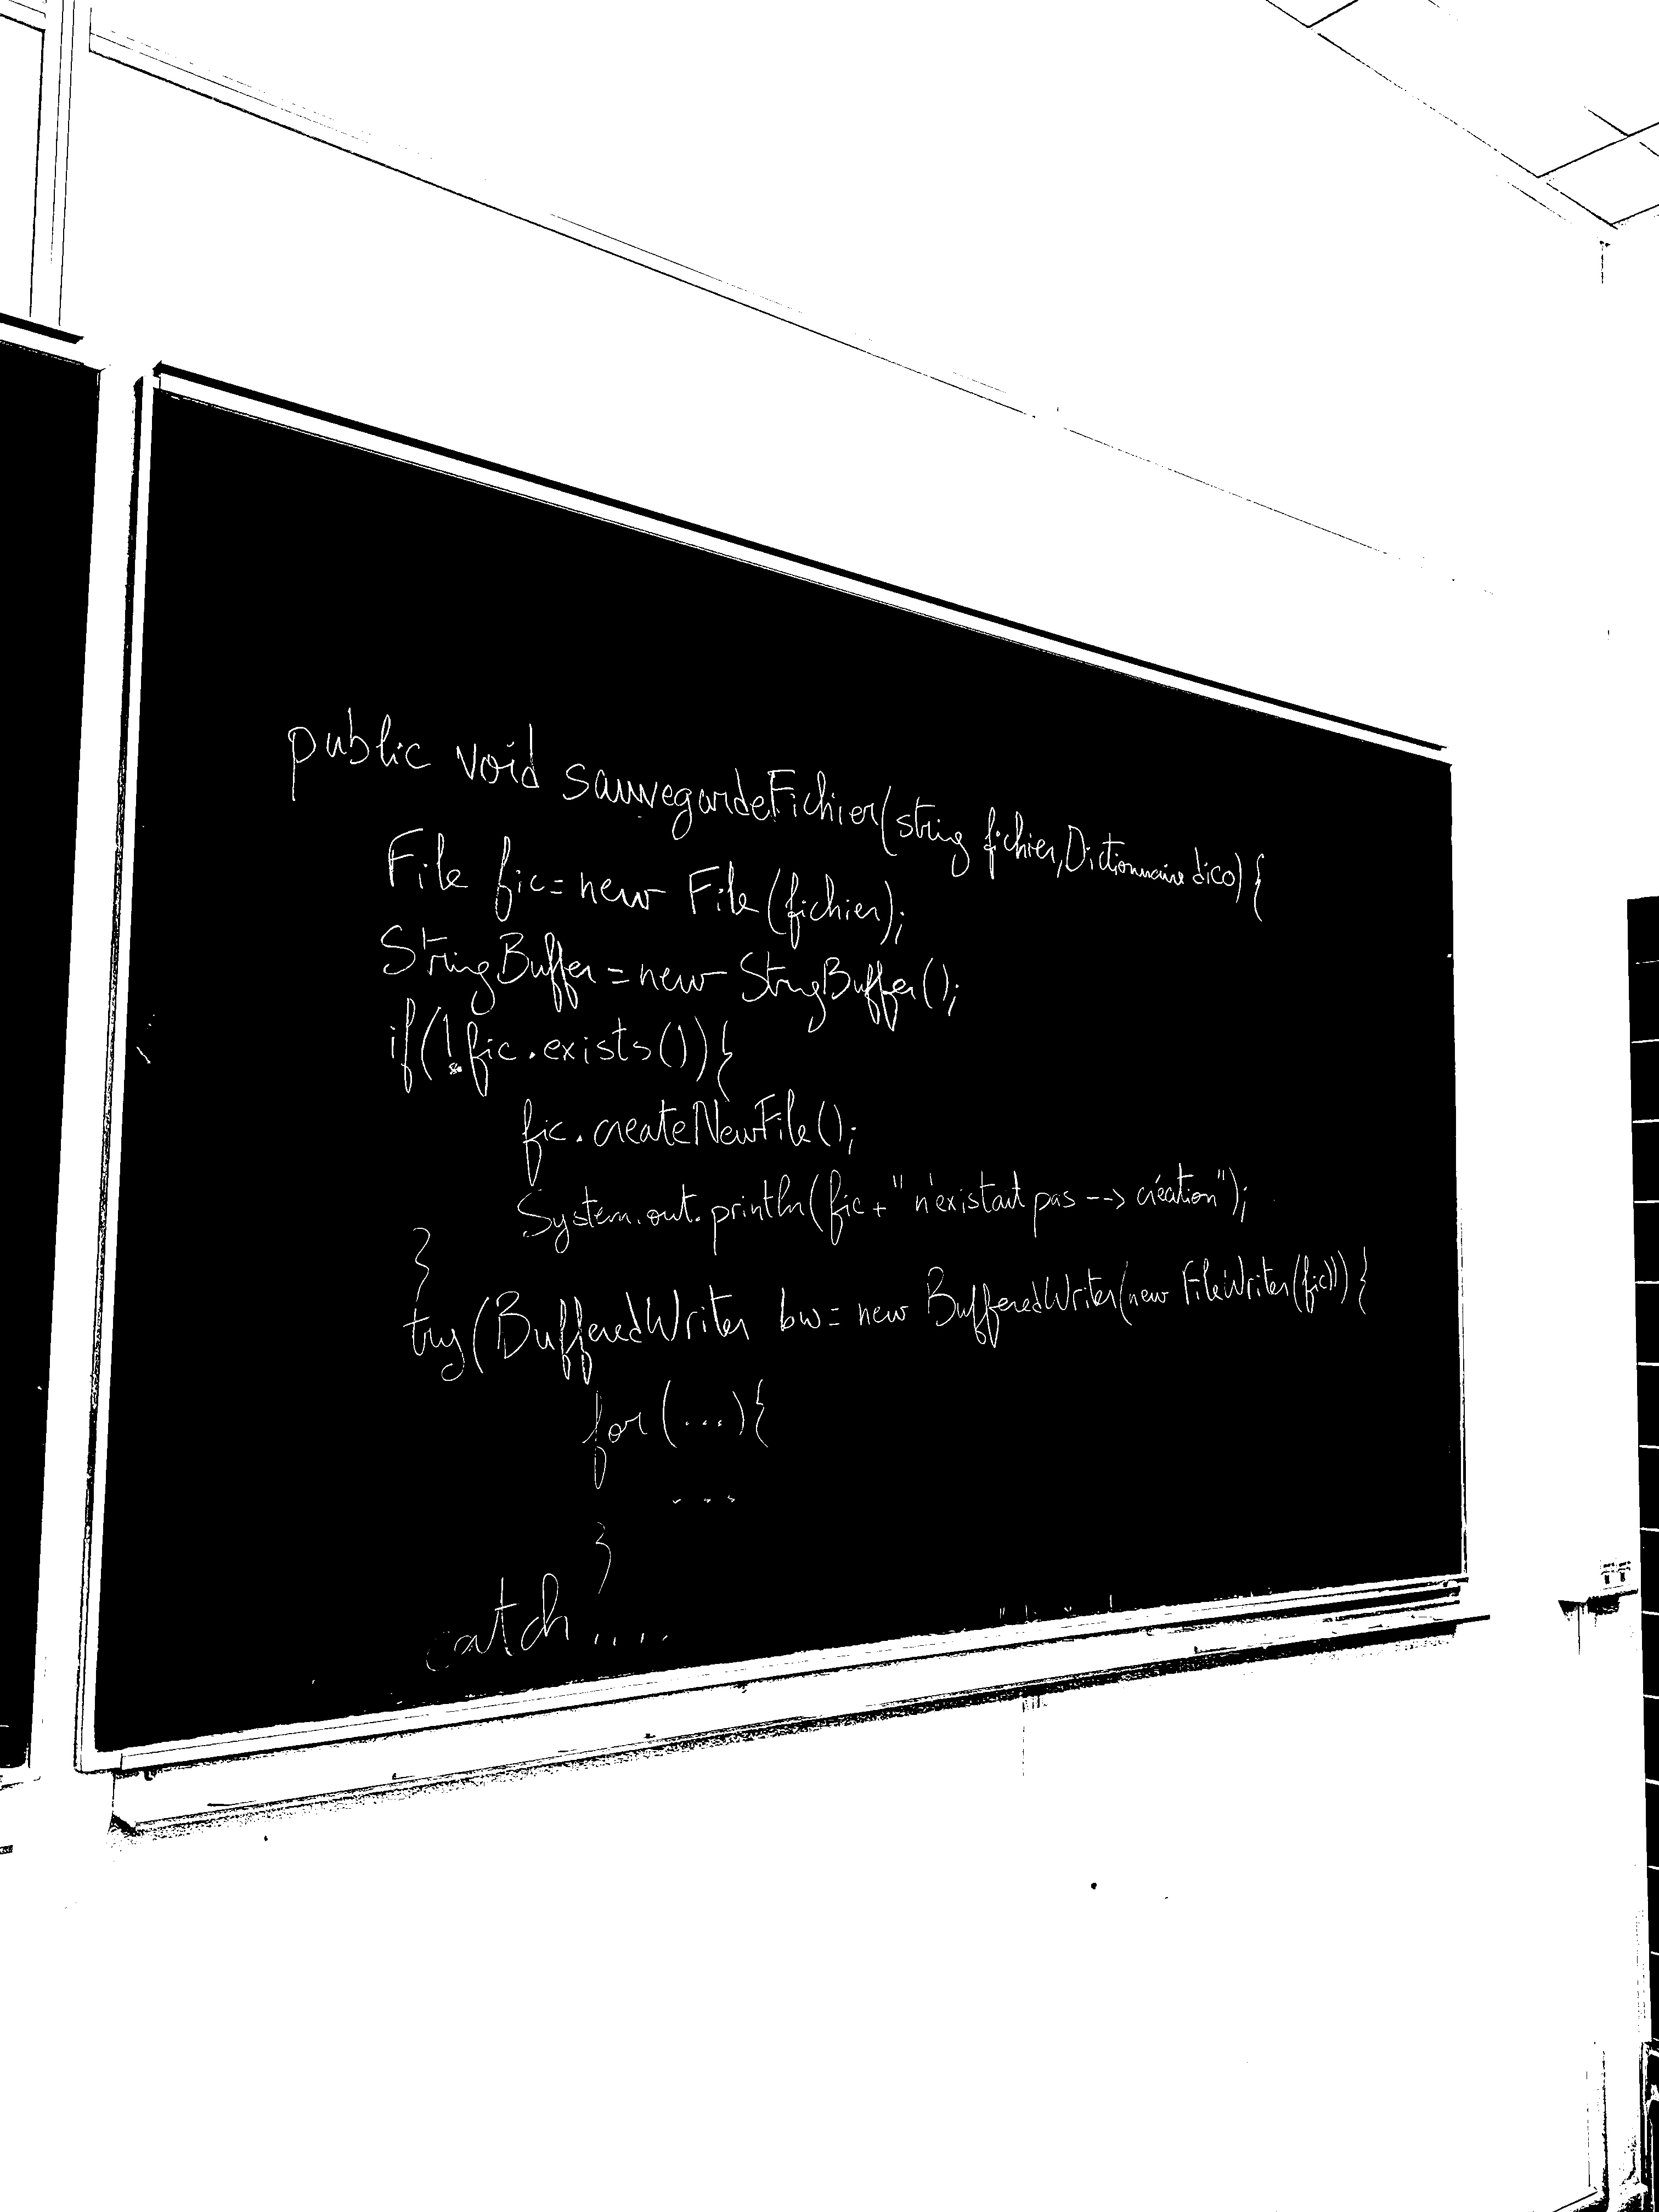 public void sauvegardeFichier(string fichier, Dictionnaire dico) {
File fic = new File(fichier);
StringBuffer = new StringBuffer();
if(!fic.exists()){
fic.createNewFile();
System.out.println(fic + " n'existait pas --> création");
}
try(BufferedWriter bw = new BufferedWriter(new FileWriter(fic))) {
for (...){
...
}
catch ....